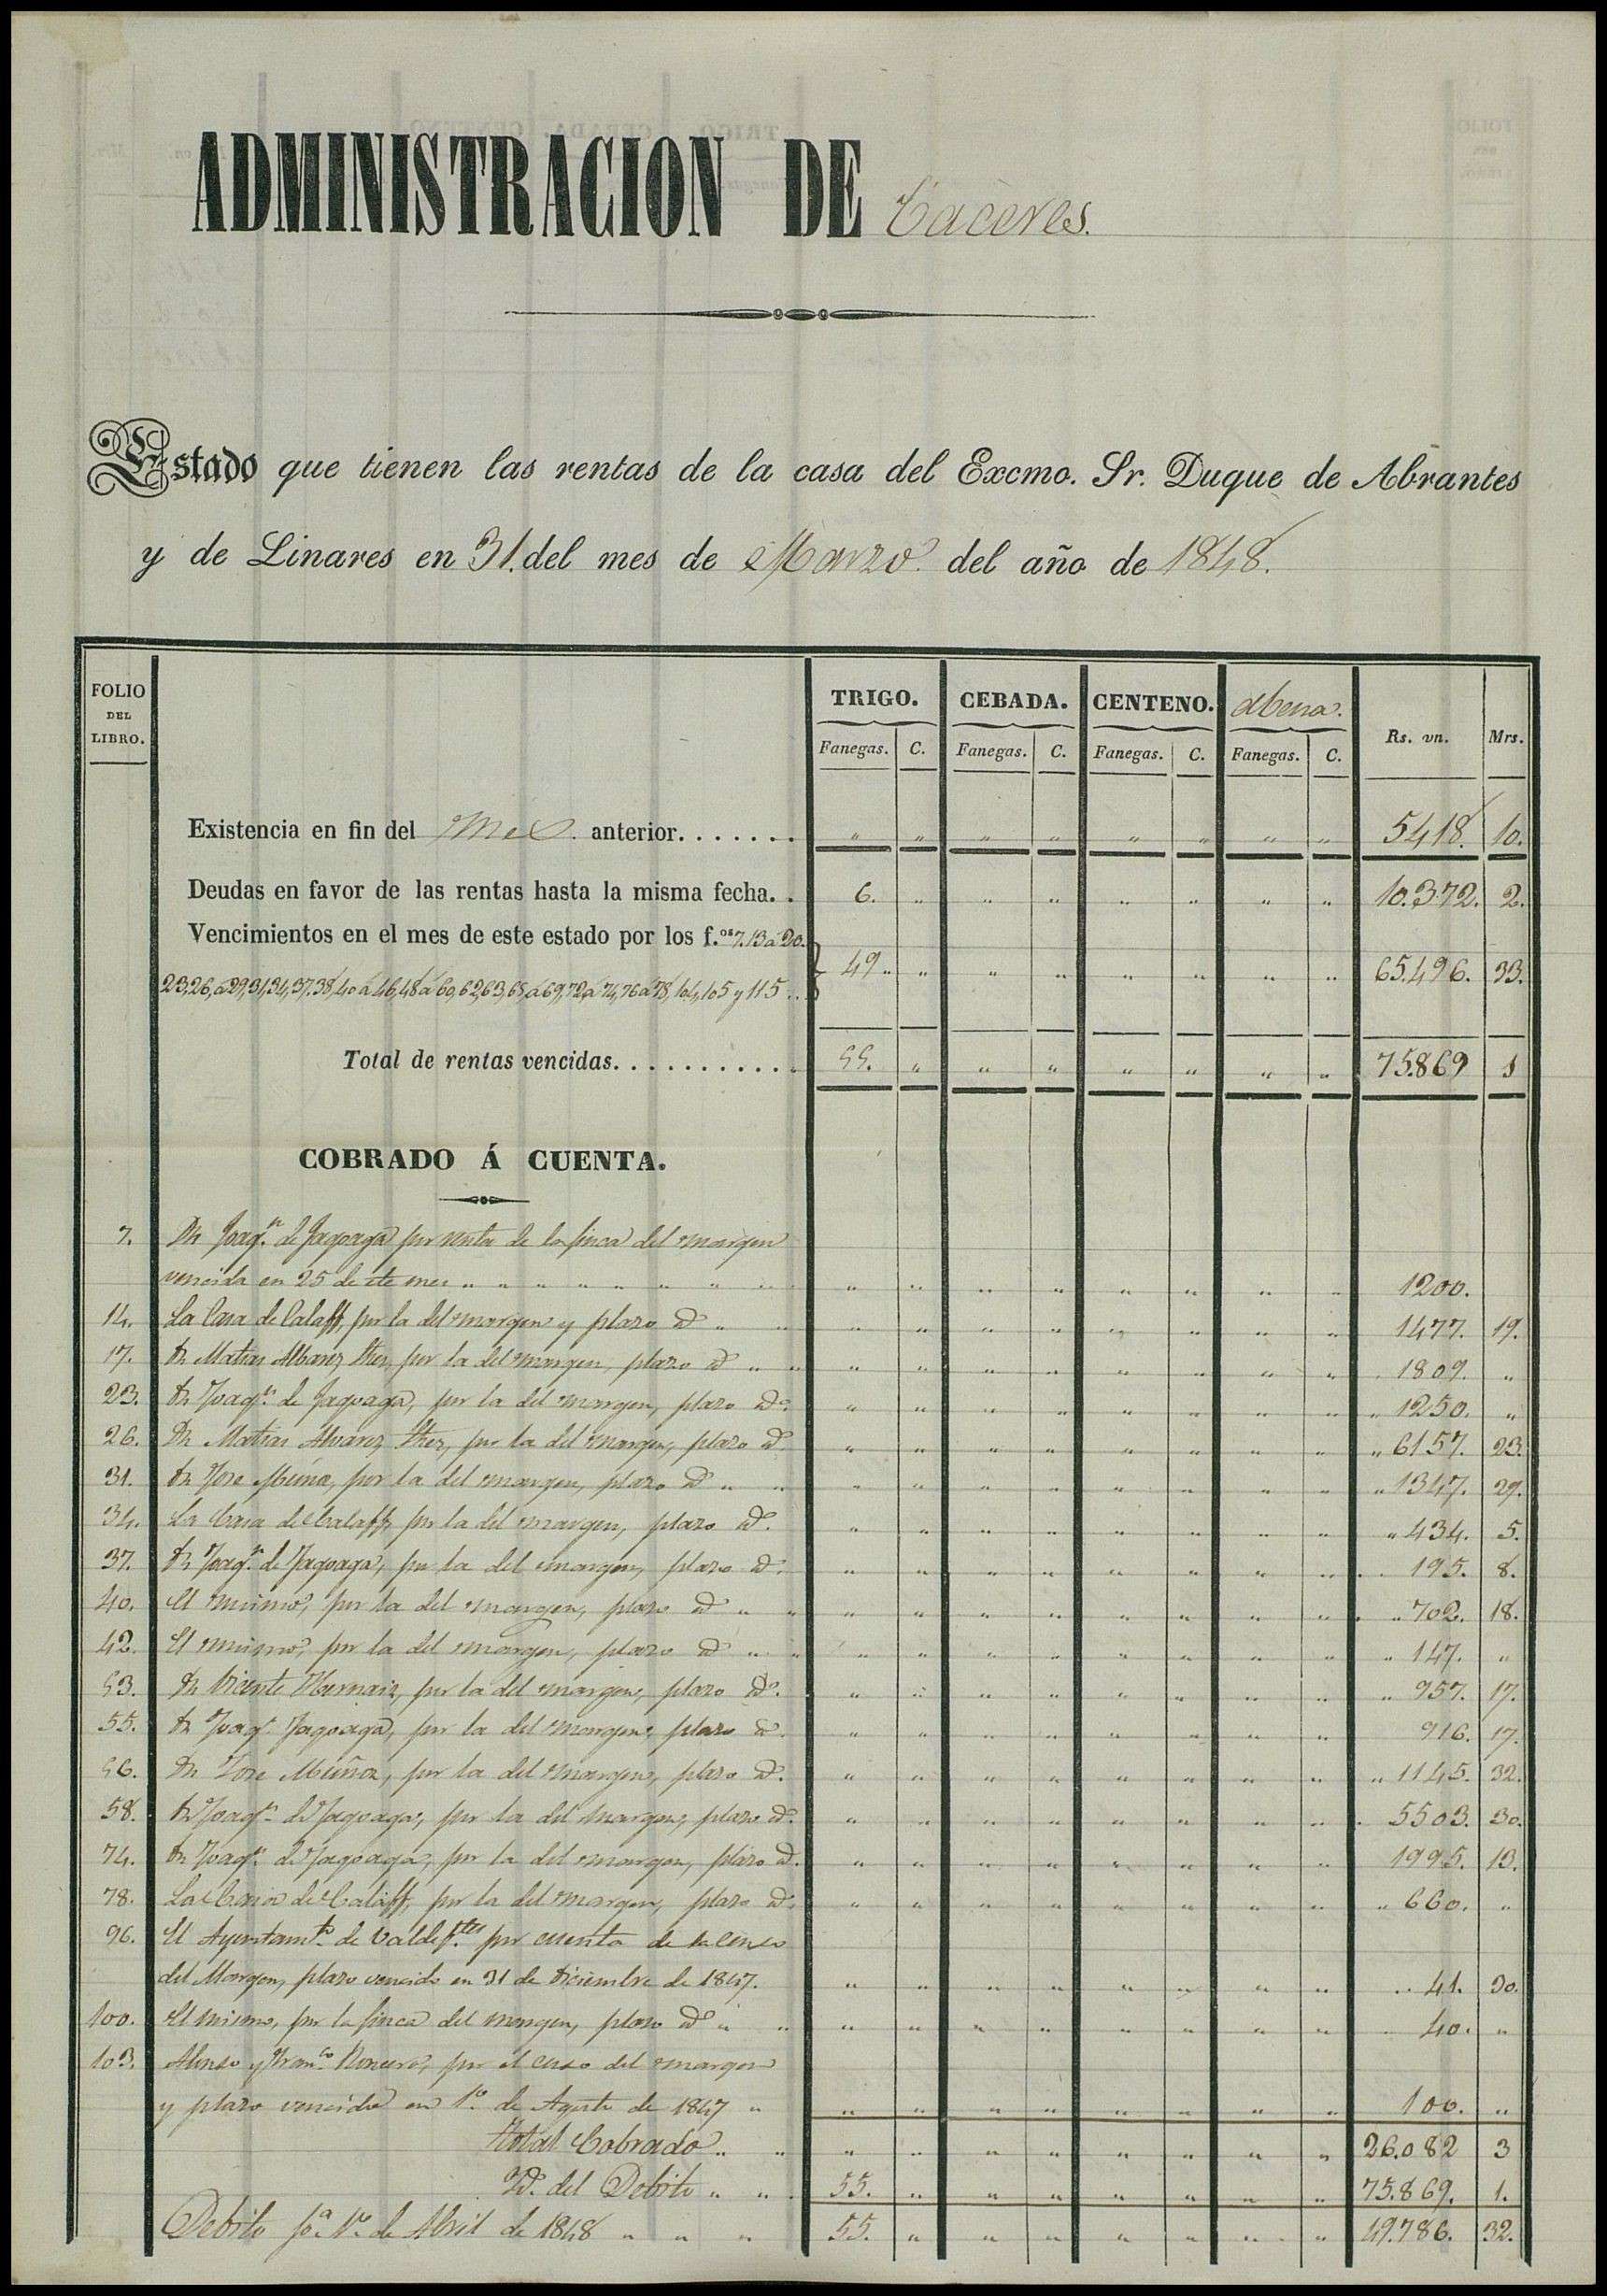 ADMINISTRACION DE Caceres.
Estado que tienen las rentas de la casa del Excmo. Sr. Duque de Abrantes
y de Linares en 31. del mes de Marzo. del año de 1848.
FOLIO DEL LIBRO. TRIGO. CEBADA. CENTENO. Abena. Rs. vn. Mrs.
Fanegas. C. Fanegas. C. Fanegas. C. Fanegas. C.
Existencia en fin del Mes. anterior....... " " " " " " " " 5418. 10.
Deudas en favor de las rentas hasta la misma fecha.. 6. " " " " " " " 10.372. 2.
Vencimientos en el mes de este estado por los f.os 7. 13 á 20.
23,26, á 29,31,34,37.38,40 á 46,48 á 60,62,63,65, á 69,72, á 74,76 á 78, 104, 105 y 115.. 49.. " " " " " " " 65.496. 33.
Total de rentas vencidas........... 55. " " " " " " " 75.869 1
COBRADO Á CUENTA.
7. Dn Joaqn. de Jagoaga por renta de la finca del margen
vencida en 25 de este mes " " " " " " " " " " " " " " " " 1200.
14. La Casa de Calaff, por la del margen y plazo id " " " " " " " " " " 1477. 19.
17. Dn Matias Albarez Ster, por la del margen, plazo id " " " " " " " " " " 1809. "
23. Dn Joaqn. de Jagoaga, por la del margen, plazo id. " " " " " " " " 1250. "
26. Dn Matias Alvarez Ster, por la del margen, plazo id " " " " " " " " 6157. 23.
31. Dn Jose Muña, por la del margen, plazo id " " " " " " " " " " 1347. 29.
34. La Casa de Calaff, por la del margen, plazo id. " " " " " " " " 434. 5.
37. Dn Joaqn. de Jagoaga, por la del margen, plazo id. " " " " " " " " 195. 8.
40. El mismo, por la del margen, plazo id " " " " " " " " " " 702. 18.
42. El mismo, por la del margen, plazo id " " " " " " " " " " 147. "
53. Dn Vicente Hernaiz, por la del margen, plazo id. " " " " " " " " 957. 17.
55. Dn Joaqn. Jagoaga, por la del margen, plazo id. " " " " " " " " 916. 17.
56. Dn Jose Muña, por la del margen, plazo id. " " " " " " " " 1145. 32.
58. Dn Joaqn. de Jagoaga, por la del margen, plazo id. " " " " " " " " 5503. 30.
74. Dn Joaqn. de Jagoaga, por la del margen, plazo id. " " " " " " " " 1995. 13.
78. La Casa de Calaff, por la del margen, plazo id. " " " " " " " " 660. "
96. El Ayuntamto. de Valdeftes. por cuenta de la cinco
del Margen, plazo vencido en 31 de Diciembre de 1847. " " " " " " " " 41. 30.
100. El mismo, por la finca del margen, plazo id " " " " " " " " " " 40. "
103. Alonso y Franco. Roncero, por el censo del margen
y plazo vencido en 1o. de Agosto de 1847 " " " " " " " " " 100. "
Total Cobrado " " " " " " " " " " 26.082 3
Id. del Debito " " 55. " " " " " " " 75.869. 1.
Debito pa. 1o. de Abril de 1848 " " " 55. " " " " " " " 49.786. 32.